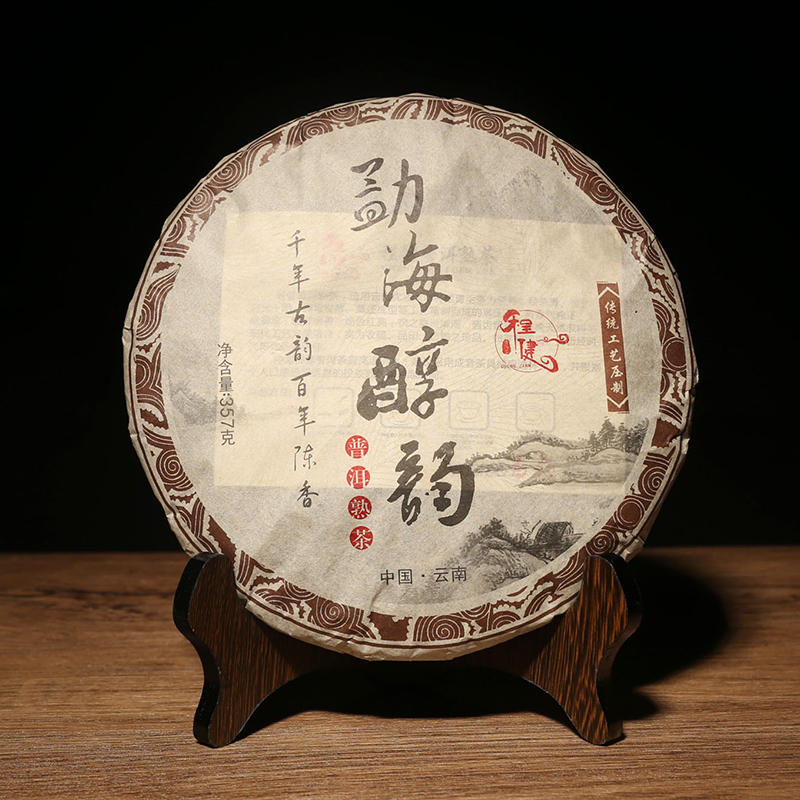 勐海醇韵
千年古韵百年陈香
普洱熟茶
程健
传统工艺压制
净含量:357克
中国·云南